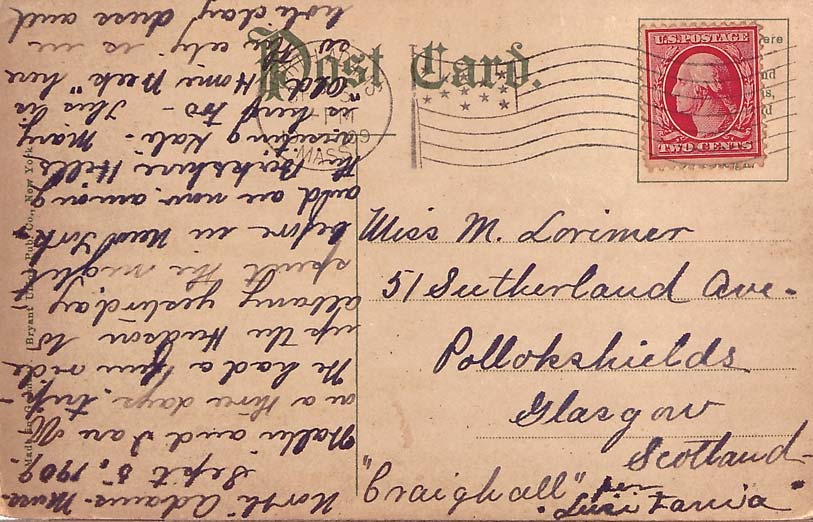 Post Card.
U.S. POSTAGE
TWO CENTS
MASS.
Miss M. Lorimer
51 Sutherland Ave-
Pollokshields
Glasgow
Scotland-
"Craighall" per
"Lusitania"
North Adams- Mass.
Sept 5, 1909,
and I are
on a three days trip-
We had a fine ride
up the Hudson to
Albany yesterday
spent the night
before in New York
and are now among
the Berkshire Hills
visiting Kate- Mary
is here too- This is
"Old Home Week" here
so the city is in
holiday dress and
Pub. Co., New York